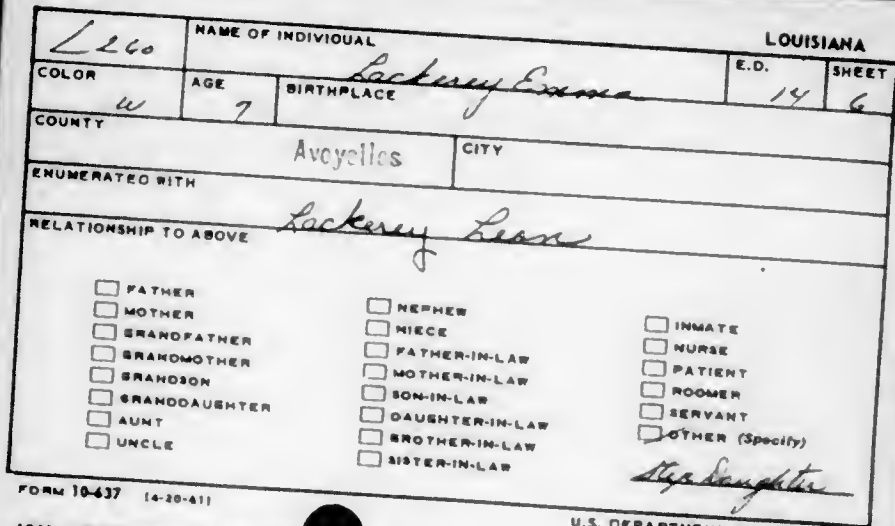 LOUISIANA
L260
NAME OF INDIVIDUAL
Lackerey Emma
E.D.
14
SHEET
6
COLOR
W
AGE
7
BIRTHPLACE
COUNTY
Avoyelles
CITY
ENUMERATED WITH
Lackerey Leon
RELATIONSHIP TO ABOVE
FATHER
MOTHER
GRANDFATHER
GRANDMOTHER
GRANDSON
GRANDDAUGHTER
AUNT
UNCLE
NEPHEW
NIECE
FATHER-IN-LAW
MOTHER-IN-LAW
SON-IN-LAW
DAUGHTER-IN-LAW
BROTHER-IN-LAW
SISTER-IN-LAW
INMATE
NURSE
PATIENT
ROOMER
SERVANT
OTHER (Specify)
Step Daughter
FORM 10-637 (4-20-61)
U.S.